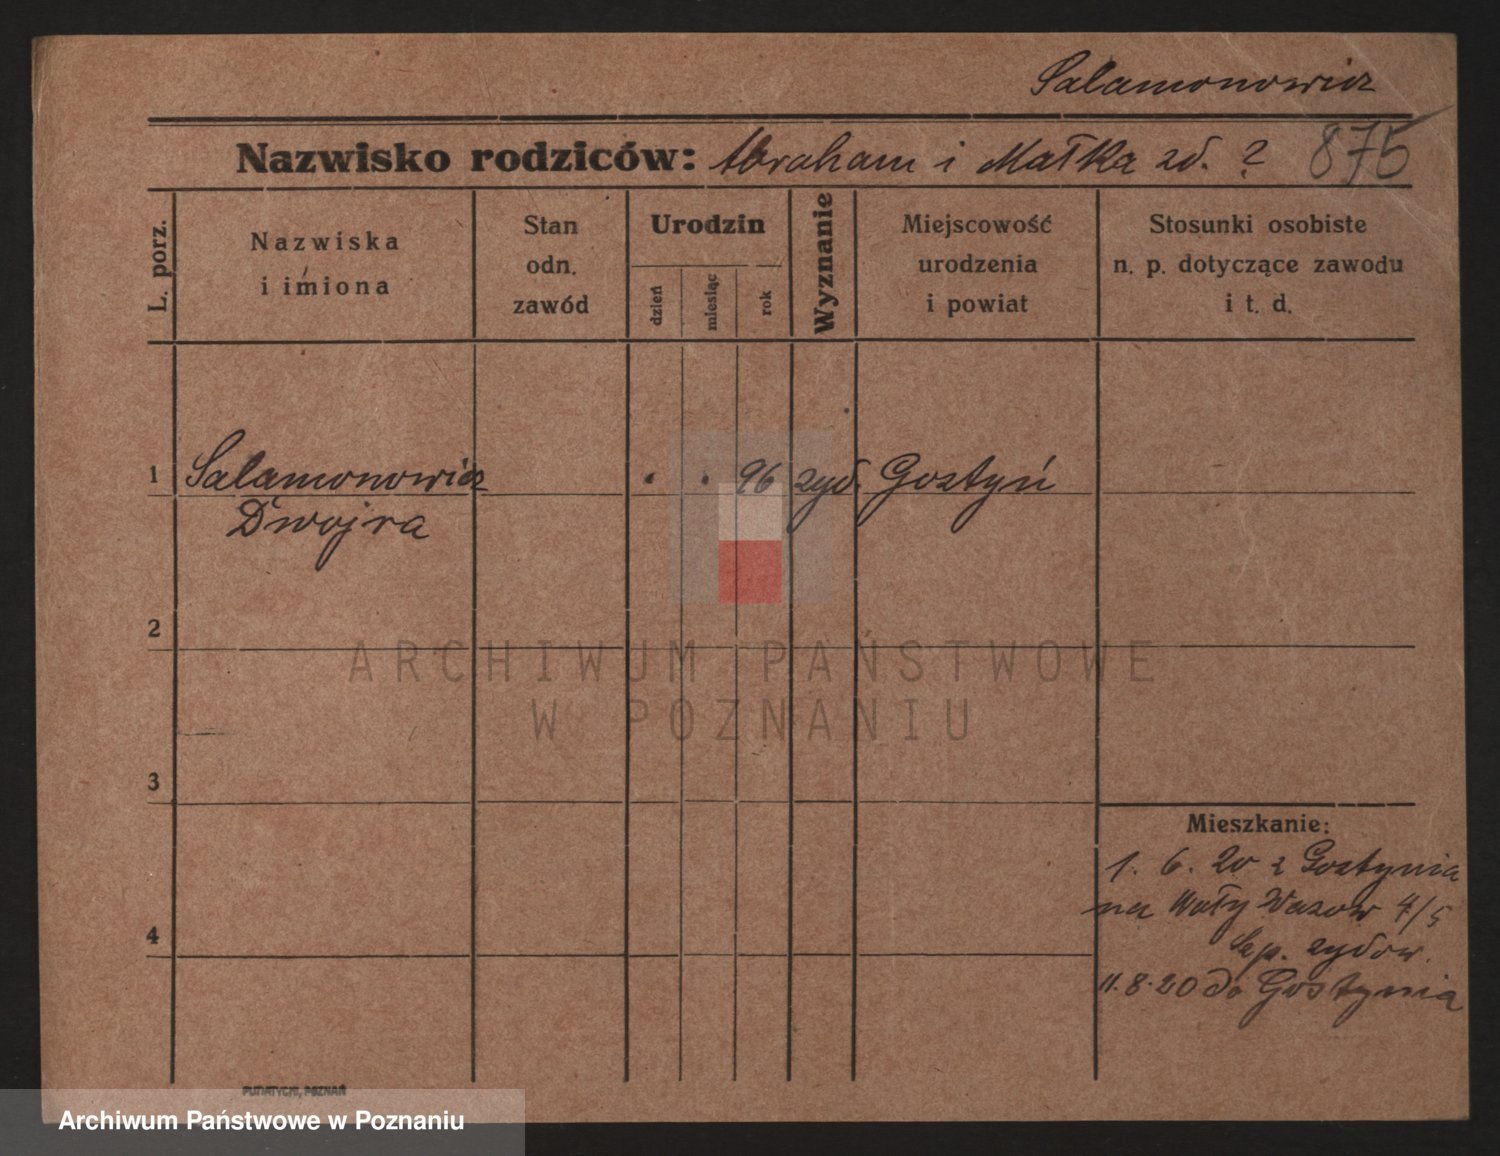 Salamonowicz
Nazwisko rodziców: Abraham i Małka zd. ? 875
L. porz.
Nazwiska
i imiona
Stan
odn.
zawód
Urodzin
dzień
miesiąc
rok
Wyznanie
Miejscowość
urodzenia
i powiat
Stosunki osobiste
n. p. dotyczące zawodu
i t. d.
1 Salamonowicz 96 żyd. Gostyń
Dwojra
2
ARCHIWUM PAŃSTWOWE
W POZNANIU
3
Mieszkanie:
1. 6. 20 z Gostynia
na Wały Wazow 4/5
żydow.
4
11.8.20 do Gostynia
PUTIATYCKI, POZNAŃ
Archiwum Państwowe w Poznaniu